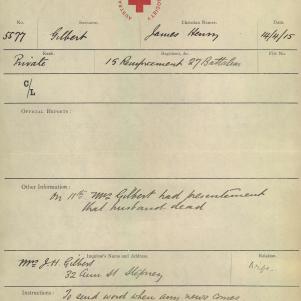 No. Surname: Christian Names: Date.
5577 Gilbert James Henry 14/11/15
Rank. Regiment, &c. File No.
Private 15 Reinforcement 27 Battalion
C/L
OFFICIAL REPORTS:
Other Information:
On 11th Mrs Gilbert had presentement
that husband dead
Inquirer's Name and Address. Relation.
Mrs J.H. Gilbert
32 Ann St Stepney
Instructions: To send word when any news comes